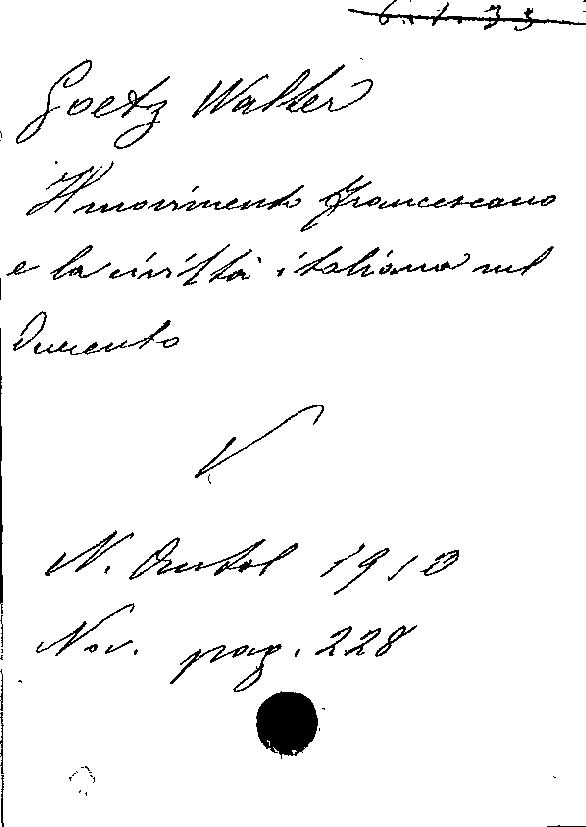 6.1.33
Goetz Walter
Il movimento francescano
e la civiltà italiana nel
Duecento
V
N. Antol 1910
Nov. pag. 228